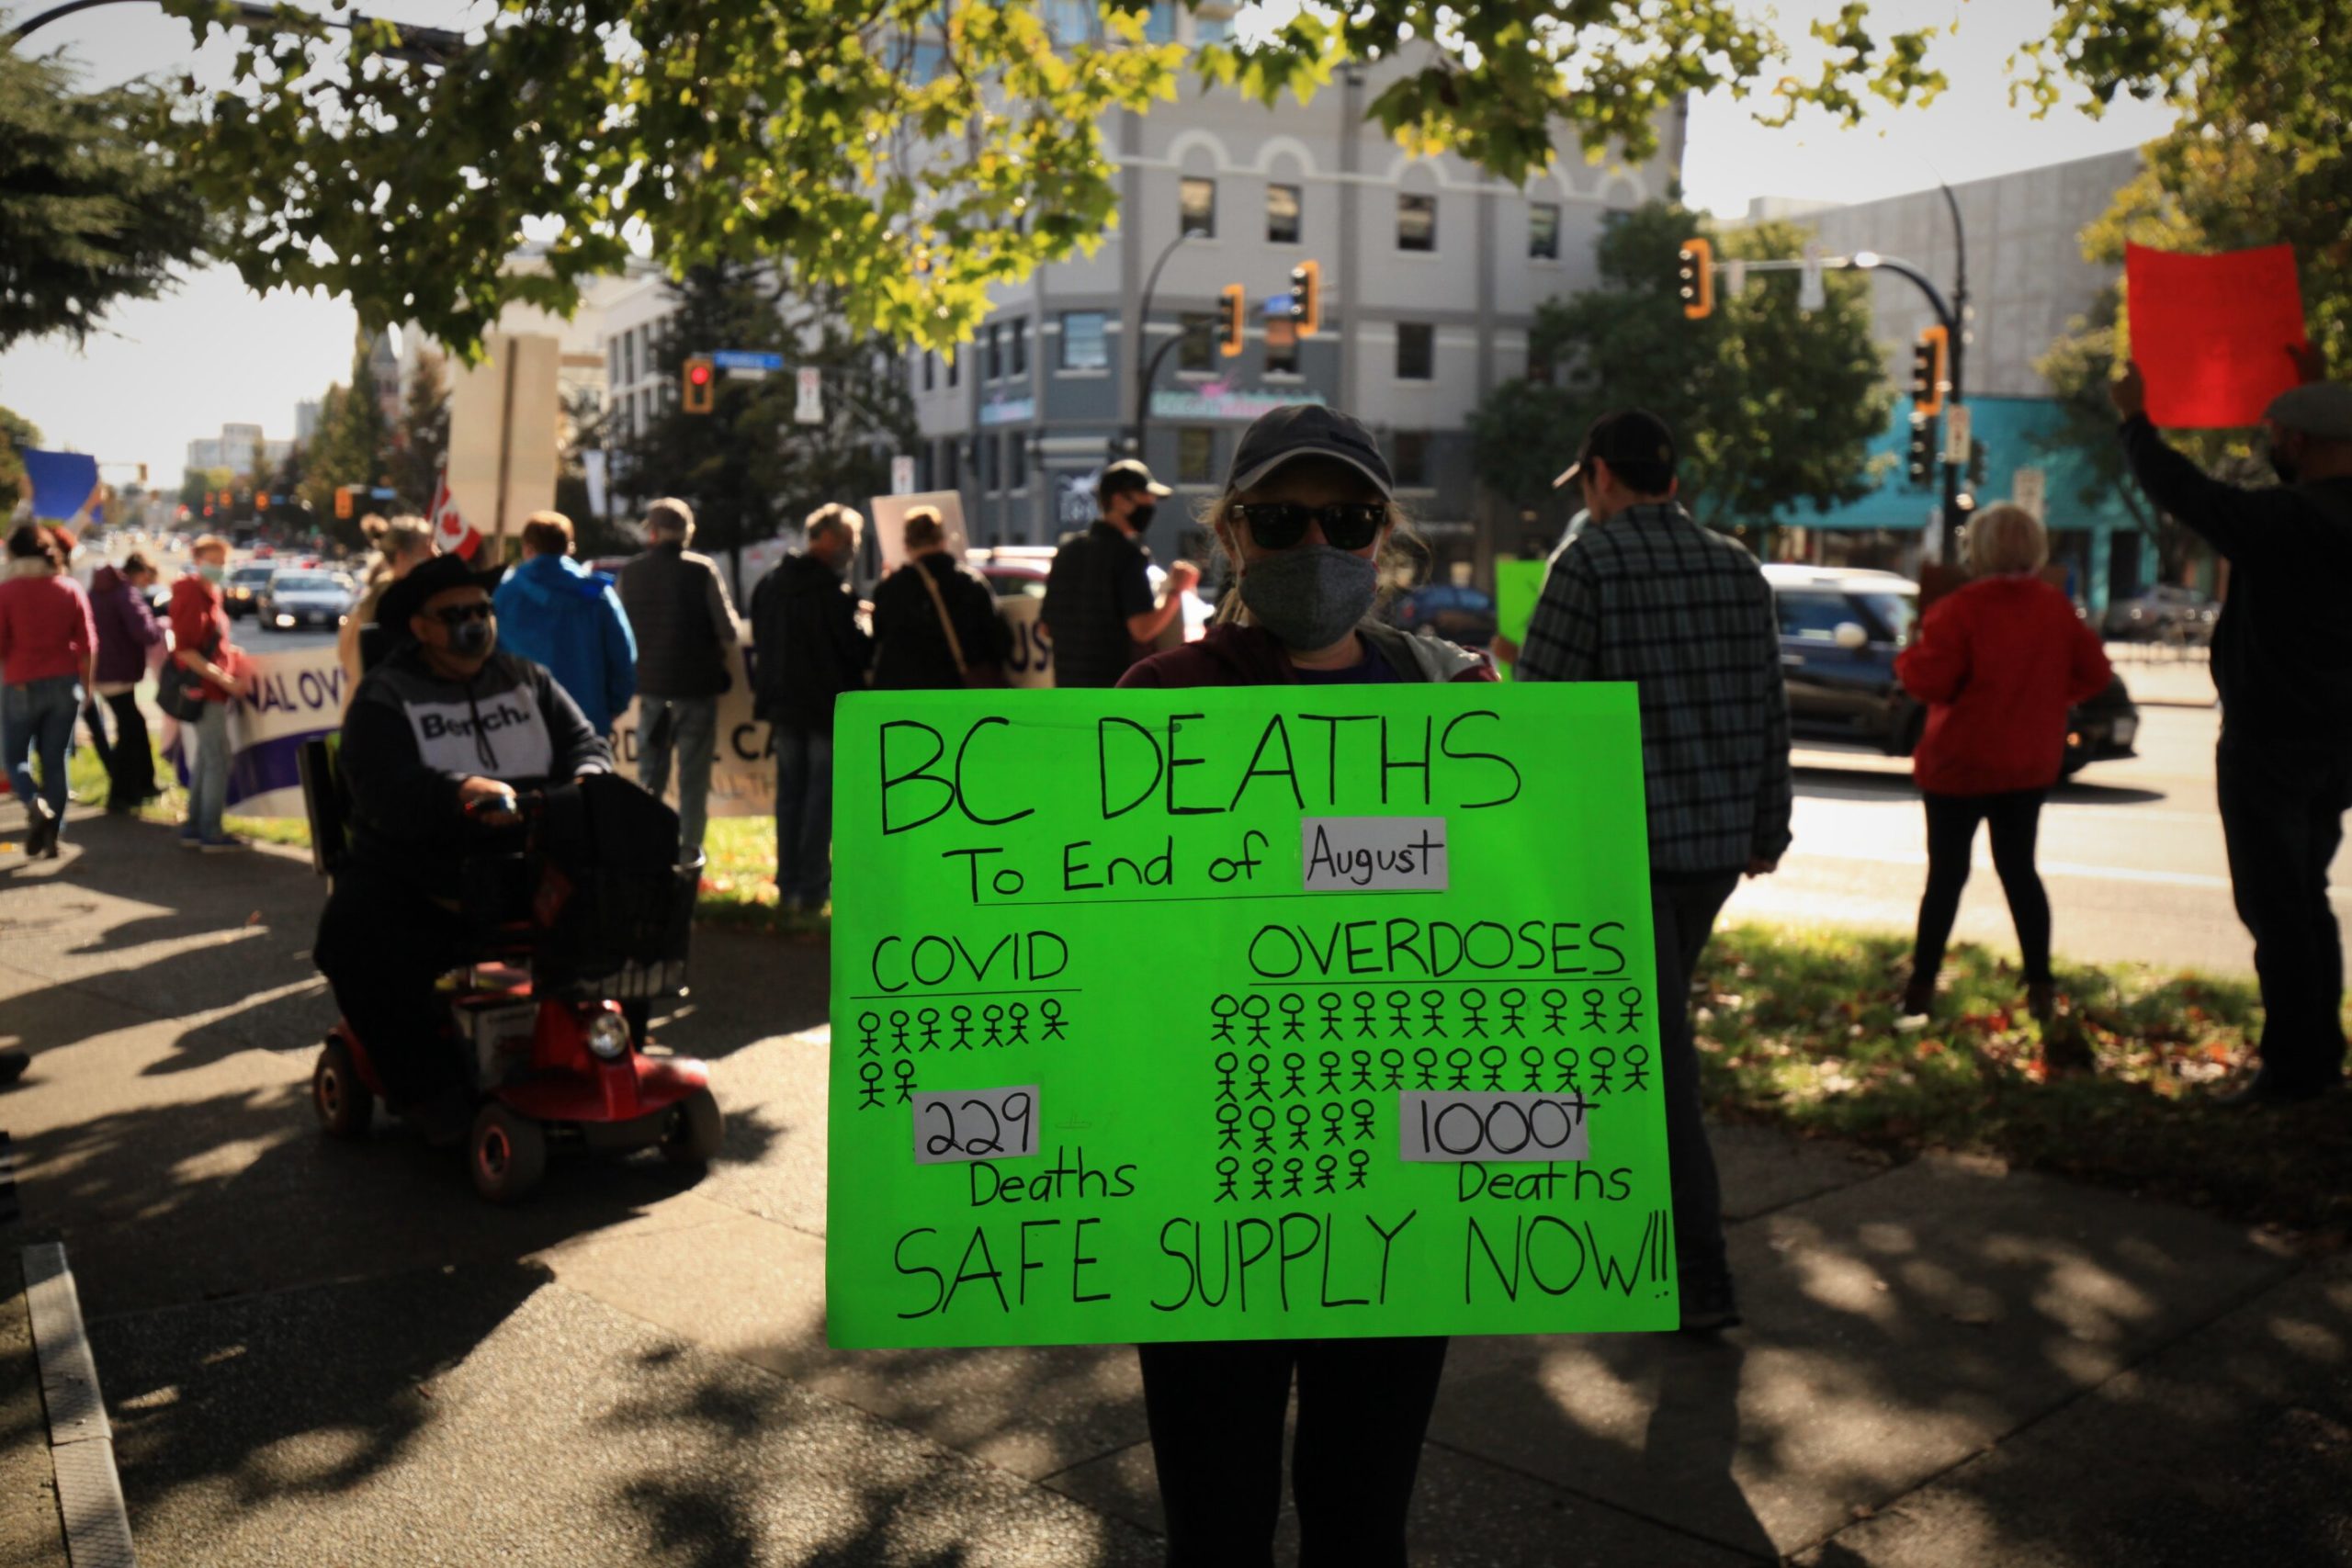 BC DEATHS
To End of August
COVID
OVERDOSES
229
Deaths
1000+
Deaths
SAFE SUPPLY NOW!!
Bench.